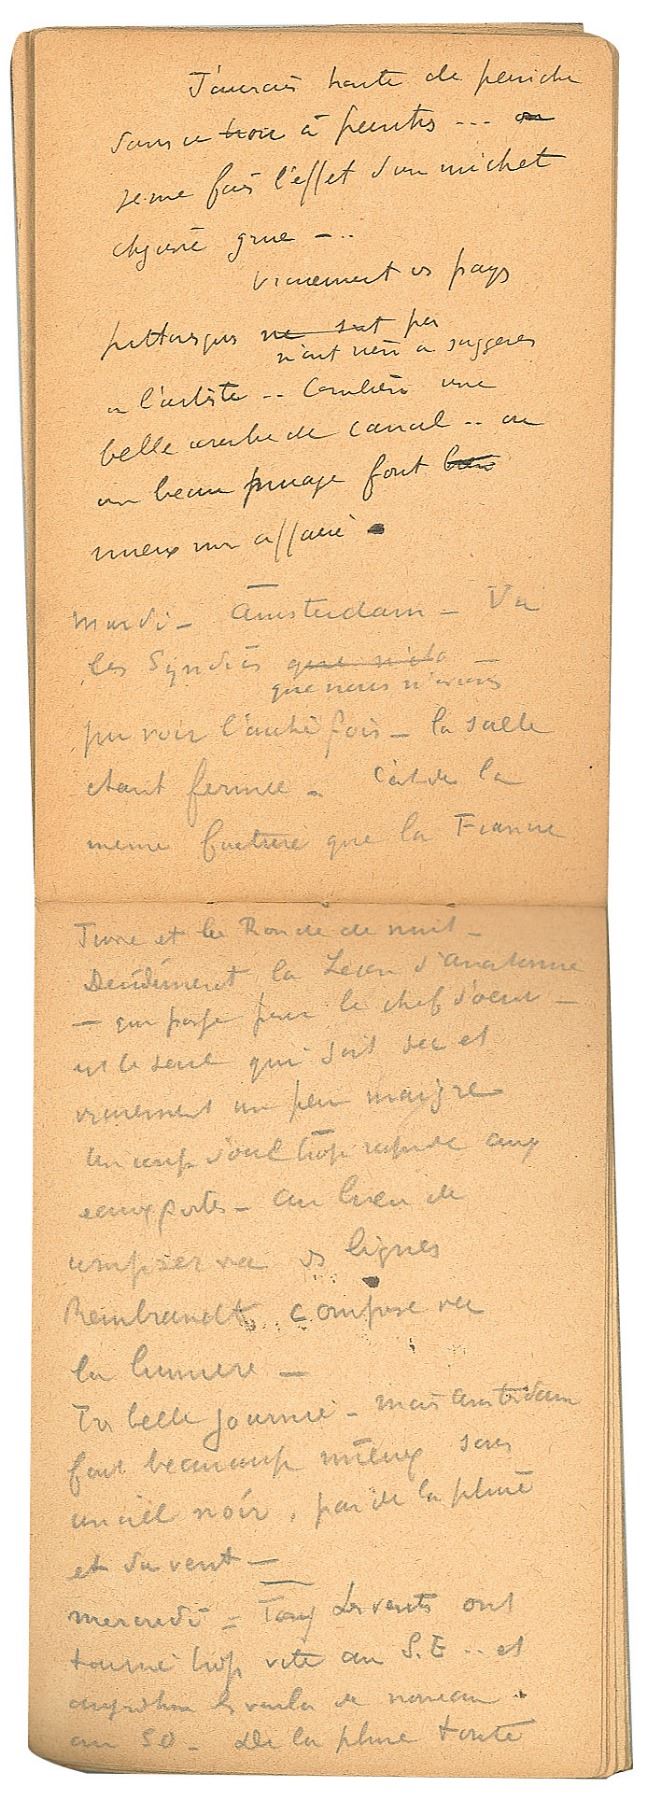 J'aurais honte de peindre
dans ce trou à peintres ... ou
je me fais l'effet d'un michet
chez une grue - ..
Vraiment ces pays
pittoresques ne sont pas
n'ont rien a suggerer
a l'artiste .. Combien une
belle courbe de canal .. ou
un beau nuage font bien
mieux mon affaire.
Mardi - Amsterdam - Vu
les Syndics que
que nous n'avions
pu voir l'autre fois - la salle
etant fermee - C'est de la
meme facture que la Fiancee
Juive et la Ronde de nuit -
Decidement la Lecon d'anatomie
- qui passe pour le chef d'oeuvre -
est le seul qui soit sec et
vraiment un peu maigre
Un coup d'oeil trop rapide aux
eaux fortes - au lieu de
composer avec des lignes
Rembrandt compose avec
la lumiere -
Tres belle journee - mais Amsterdam
fait beaucoup mieux sous
un ciel noir, par de la pluie
et du vent -
Mercredi - Les vents ont
tourne trop vite au S.E .. et
aujourd'hui les voila de nouveau
au SO - De la pluie toute